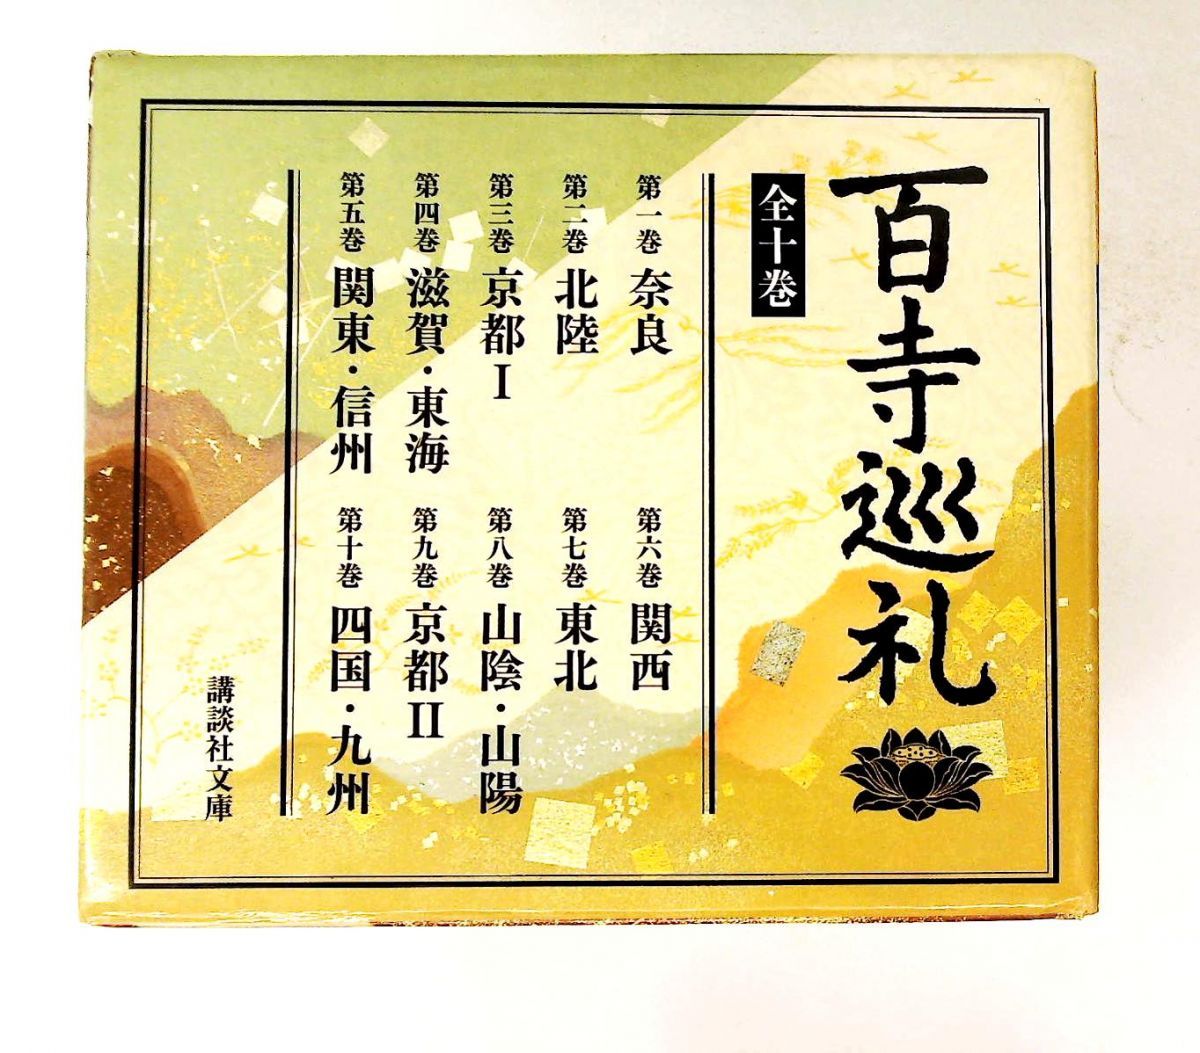 百寺巡礼
全十巻
第一巻 奈良
第二巻 北陸
第三巻 京都Ⅰ
第四巻 滋賀・東海
第五巻 関東・信州
第六巻 関西
第七巻 東北
第八巻 山陰・山陽
第九巻 京都Ⅱ
第十巻 四国・九州
講談社文庫